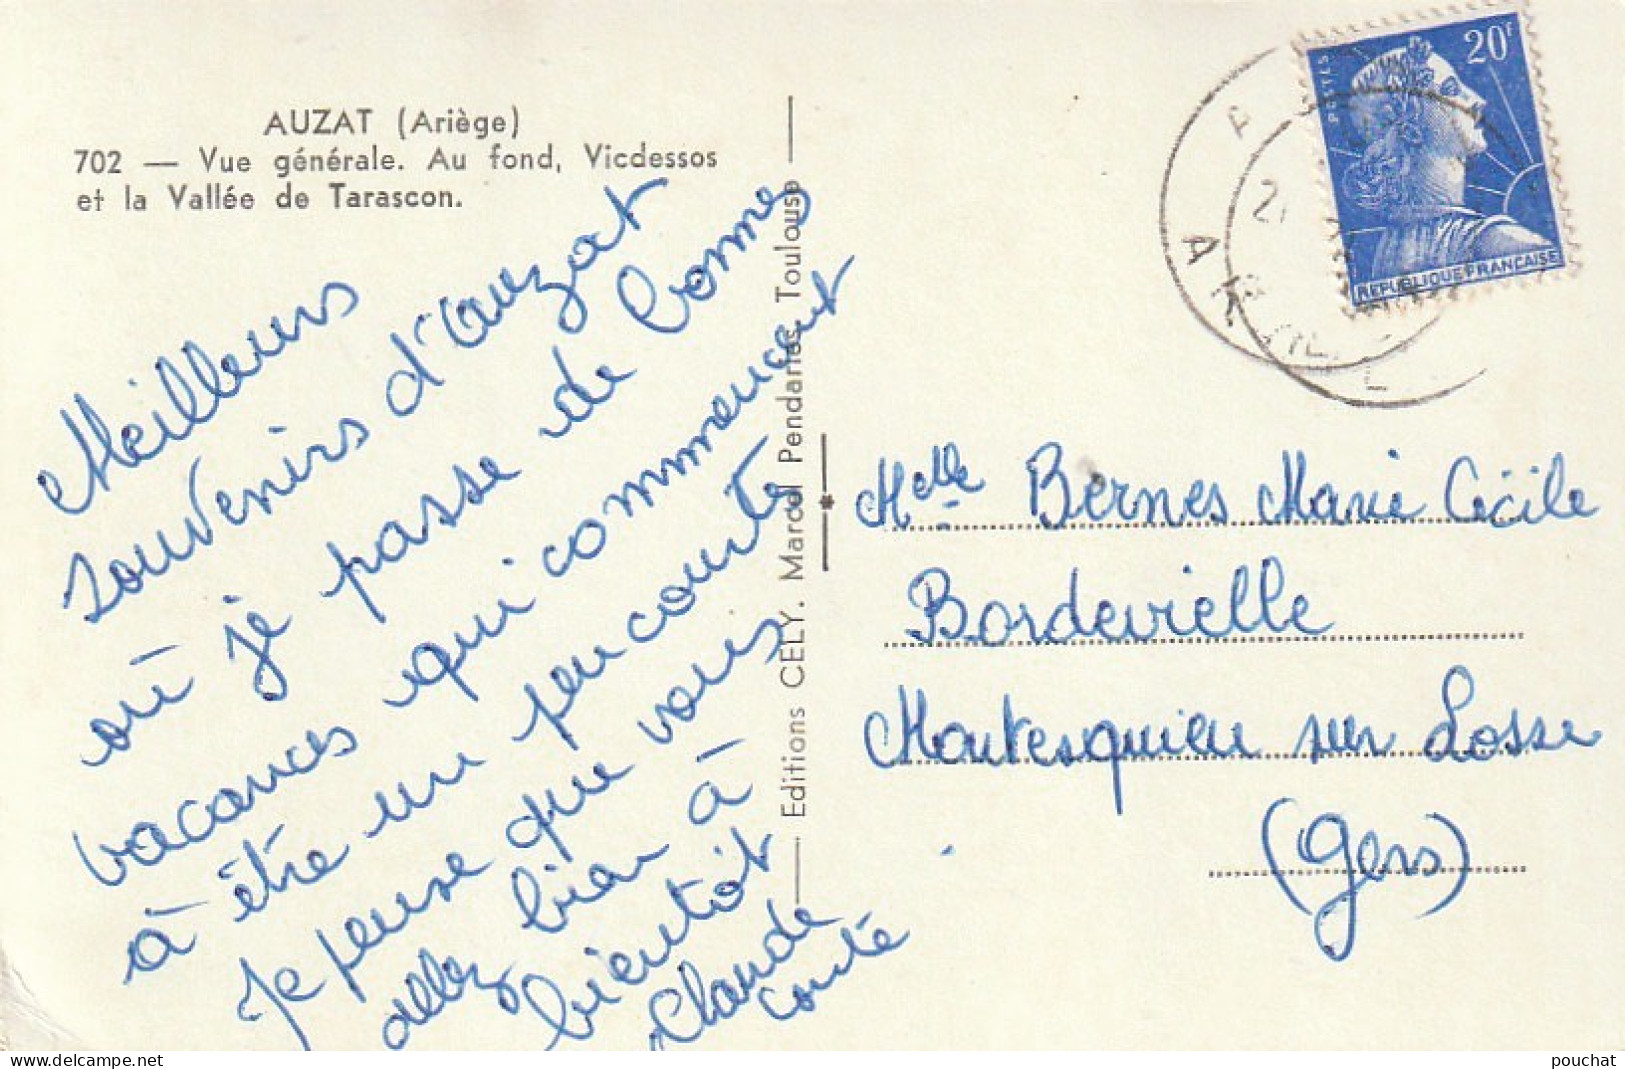 AUZAT (Ariège)
702 — Vue générale. Au fond, Vicdessos
et la Vallée de Tarascon.
Meilleurs
souvenirs d'Auzat
où je passe de bonnes
vacances qui commencent
à être un peu courtes
Je pense que vous
allez bien à
bientôt
Claude
Editions CELY. Marcel Pendariès, Toulouse
20F
POSTES
REPUBLIQUE FRANÇAISE
Melle Bernes Marie Cécile
Bordevielle
Montesquieu sur Losse
(Gers)
pouchat